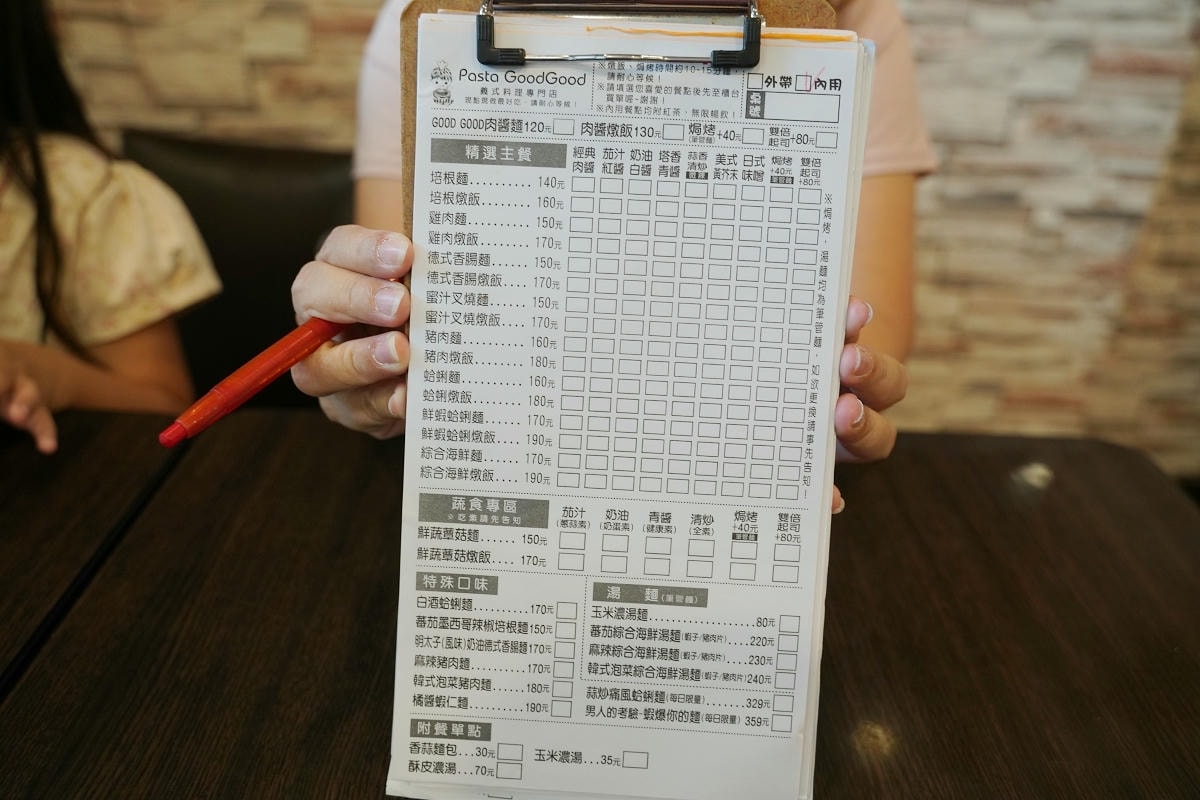 Pasta GoodGood
義式料理專門店
現點現做最好吃,請耐心等候!
※燉飯、焗烤時間約10-15分鐘,
請耐心等候!
※請填選您喜愛的餐點後先至櫃台
買單喔~謝謝!
※內用餐點均附紅茶、無限暢飲!
外帶 內用
桌號
GOOD GOOD肉醬麵120元 肉醬燉飯130元 焗烤(筆管麵)+40元 雙倍起司+80元
精選主餐 經典肉醬 茄汁紅醬 奶油白醬 塔香青醬 蒜香清炒微辣 美式黃芥末 日式味噌 焗烤+40元筆管麵 雙倍起司+80元
培根麵.......... 140元
培根燉飯........ 160元
雞肉麵.......... 150元
雞肉燉飯........ 170元
德式香腸麵...... 150元
德式香腸燉飯.... 170元
蜜汁叉燒麵...... 150元
蜜汁叉燒燉飯.... 170元
豬肉麵.......... 160元
豬肉燉飯........ 180元
蛤蜊麵.......... 160元
蛤蜊燉飯........ 180元
鮮蝦蛤蜊麵...... 170元
鮮蝦蛤蜊燉飯.... 190元
綜合海鮮麵...... 170元
綜合海鮮燉飯.... 190元
※焗烤,湯麵均為筆管麵,如欲更換請事先告知!
蔬食專區
※吃素請先告知
茄汁(蔥蒜素) 奶油(奶蛋素) 青醬(健康素) 清炒(全素) 焗烤+40元筆管麵 雙倍起司+80元
鮮蔬蕈菇麵...... 150元
鮮蔬蕈菇燉飯.... 170元
特殊口味
白酒蛤蜊麵.........170元
蕃茄墨西哥辣椒培根麵150元
明太子(風味)奶油德式香腸麵170元
麻辣豬肉麵.........170元
韓式泡菜豬肉麵.....180元
橘醬蝦仁麵.........190元
湯 麵(筆管麵)
玉米濃湯麵.......................80元
蕃茄綜合海鮮湯麵(蝦子/豬肉片)....220元
麻辣綜合海鮮湯麵(蝦子/豬肉片)....230元
韓式泡菜綜合海鮮湯麵(蝦子/豬肉片)240元
蒜炒痛風蛤蜊麵(每日限量).......329元
男人的考驗-蝦爆你的麵(每日限量) 359元
附餐單點
香蒜麵包...30元 玉米濃湯...35元
酥皮濃湯...70元